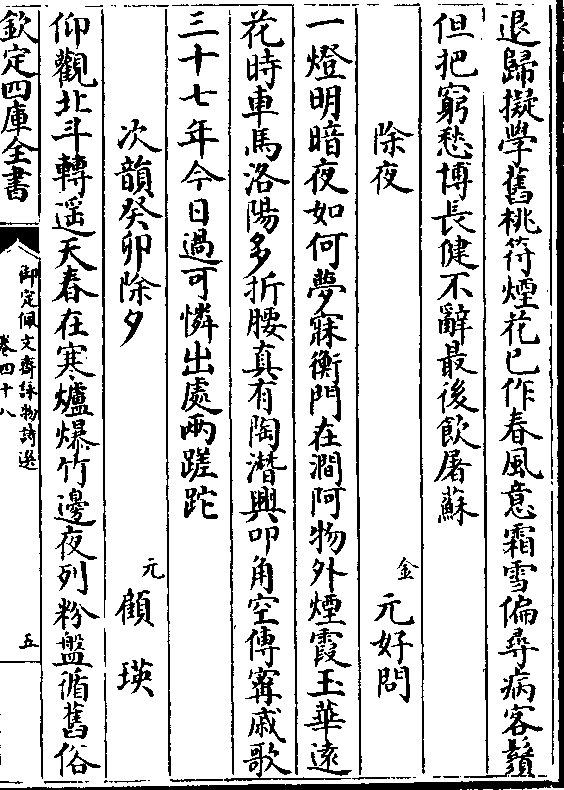 退歸擬學舊桃符煙花已作春風意霜雪偏尋病客鬚
但把窮愁博長健不辭最後飲屠蘇
除夜
金 元好問
一燈明暗夜如何夢寐衡門在澗阿物外煙霞玉華遠
花時車馬洛陽多折腰真有陶潛興叩角空傳甯戚歌
三十七年今日過可憐出處兩蹉跎
次韻癸卯除夕
元 顧瑛
仰觀北斗轉遥天春在寒爐爆竹邊夜列粉盤循舊俗
欽定四庫全書
御定佩文齋詠物詩選
卷四十八
五